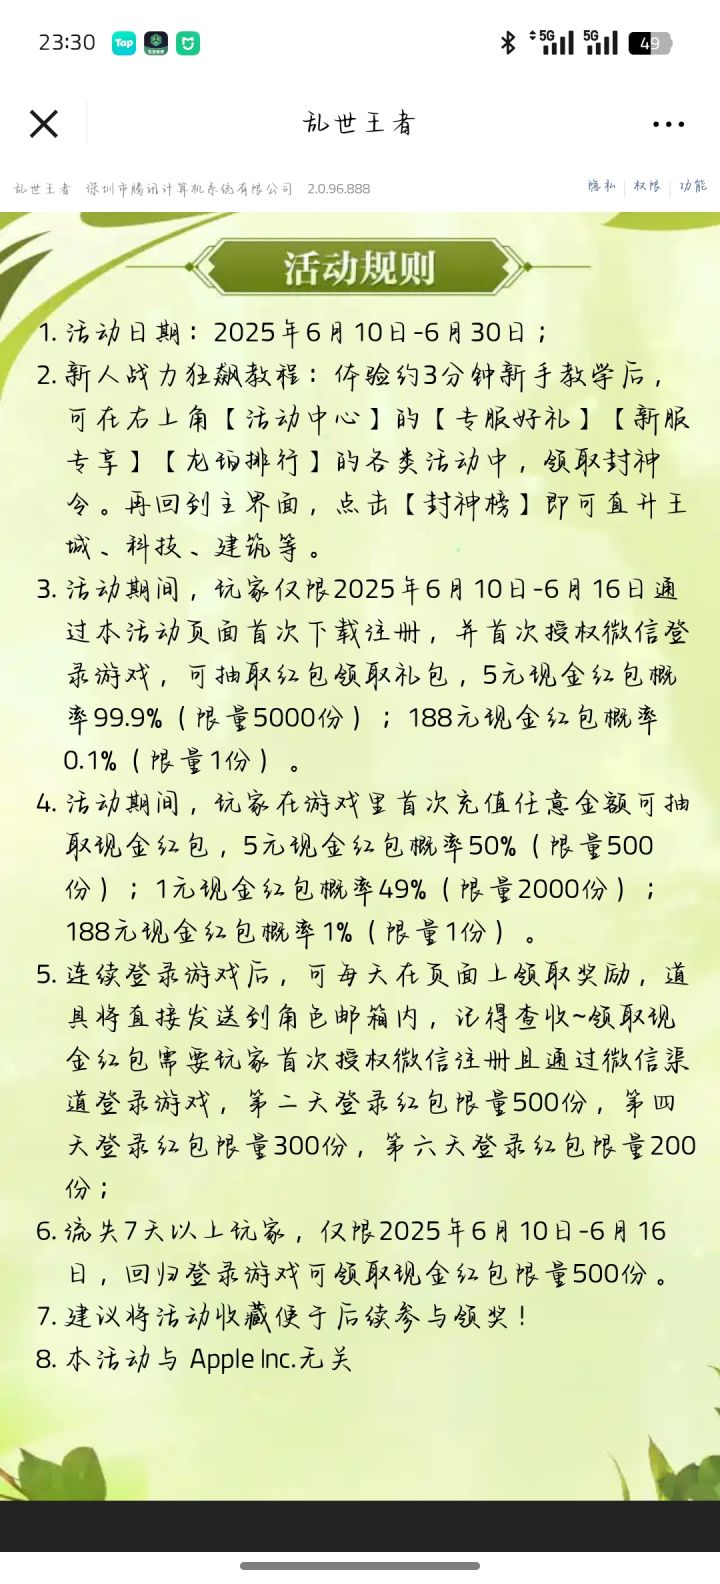 23:30
Tap
5G
5G
49
乱世王者
乱世王者 深圳市腾讯计算机系统有限公司 2.0.96.888
隐私 权限 功能
活动规则
1. 活动日期：2025年6月10日-6月30日；
2. 新人战力狂飙教程：体验约3分钟新手教学后，
可在右上角【活动中心】的【专服好礼】【新服
专享】【龙珀排行】的各类活动中，领取封神
令。再回到主界面，点击【封神榜】即可直升王
城、科技、建筑等。
3. 活动期间，玩家仅限2025年6月10日-6月16日通
过本活动页面首次下载注册，并首次授权微信登
录游戏，可抽取红包领取礼包，5元现金红包概
率99.9%（限量5000份）；188元现金红包概率
0.1%（限量1份）。
4. 活动期间，玩家在游戏里首次充值任意金额可抽
取现金红包，5元现金红包概率50%（限量500
份）；1元现金红包概率49%（限量2000份）；
188元现金红包概率1%（限量1份）。
5. 连续登录游戏后，可每天在页面上领取奖励，道
具将直接发送到角色邮箱内，记得查收~领取现
金红包需要玩家首次授权微信注册且通过微信渠
道登录游戏，第二天登录红包限量500份，第四
天登录红包限量300份，第六天登录红包限量200
份；
6. 流失7天以上玩家，仅限2025年6月10日-6月16
日，回归登录游戏可领取现金红包限量500份。
7. 建议将活动收藏便于后续参与领奖！
8. 本活动与 Apple Inc.无关